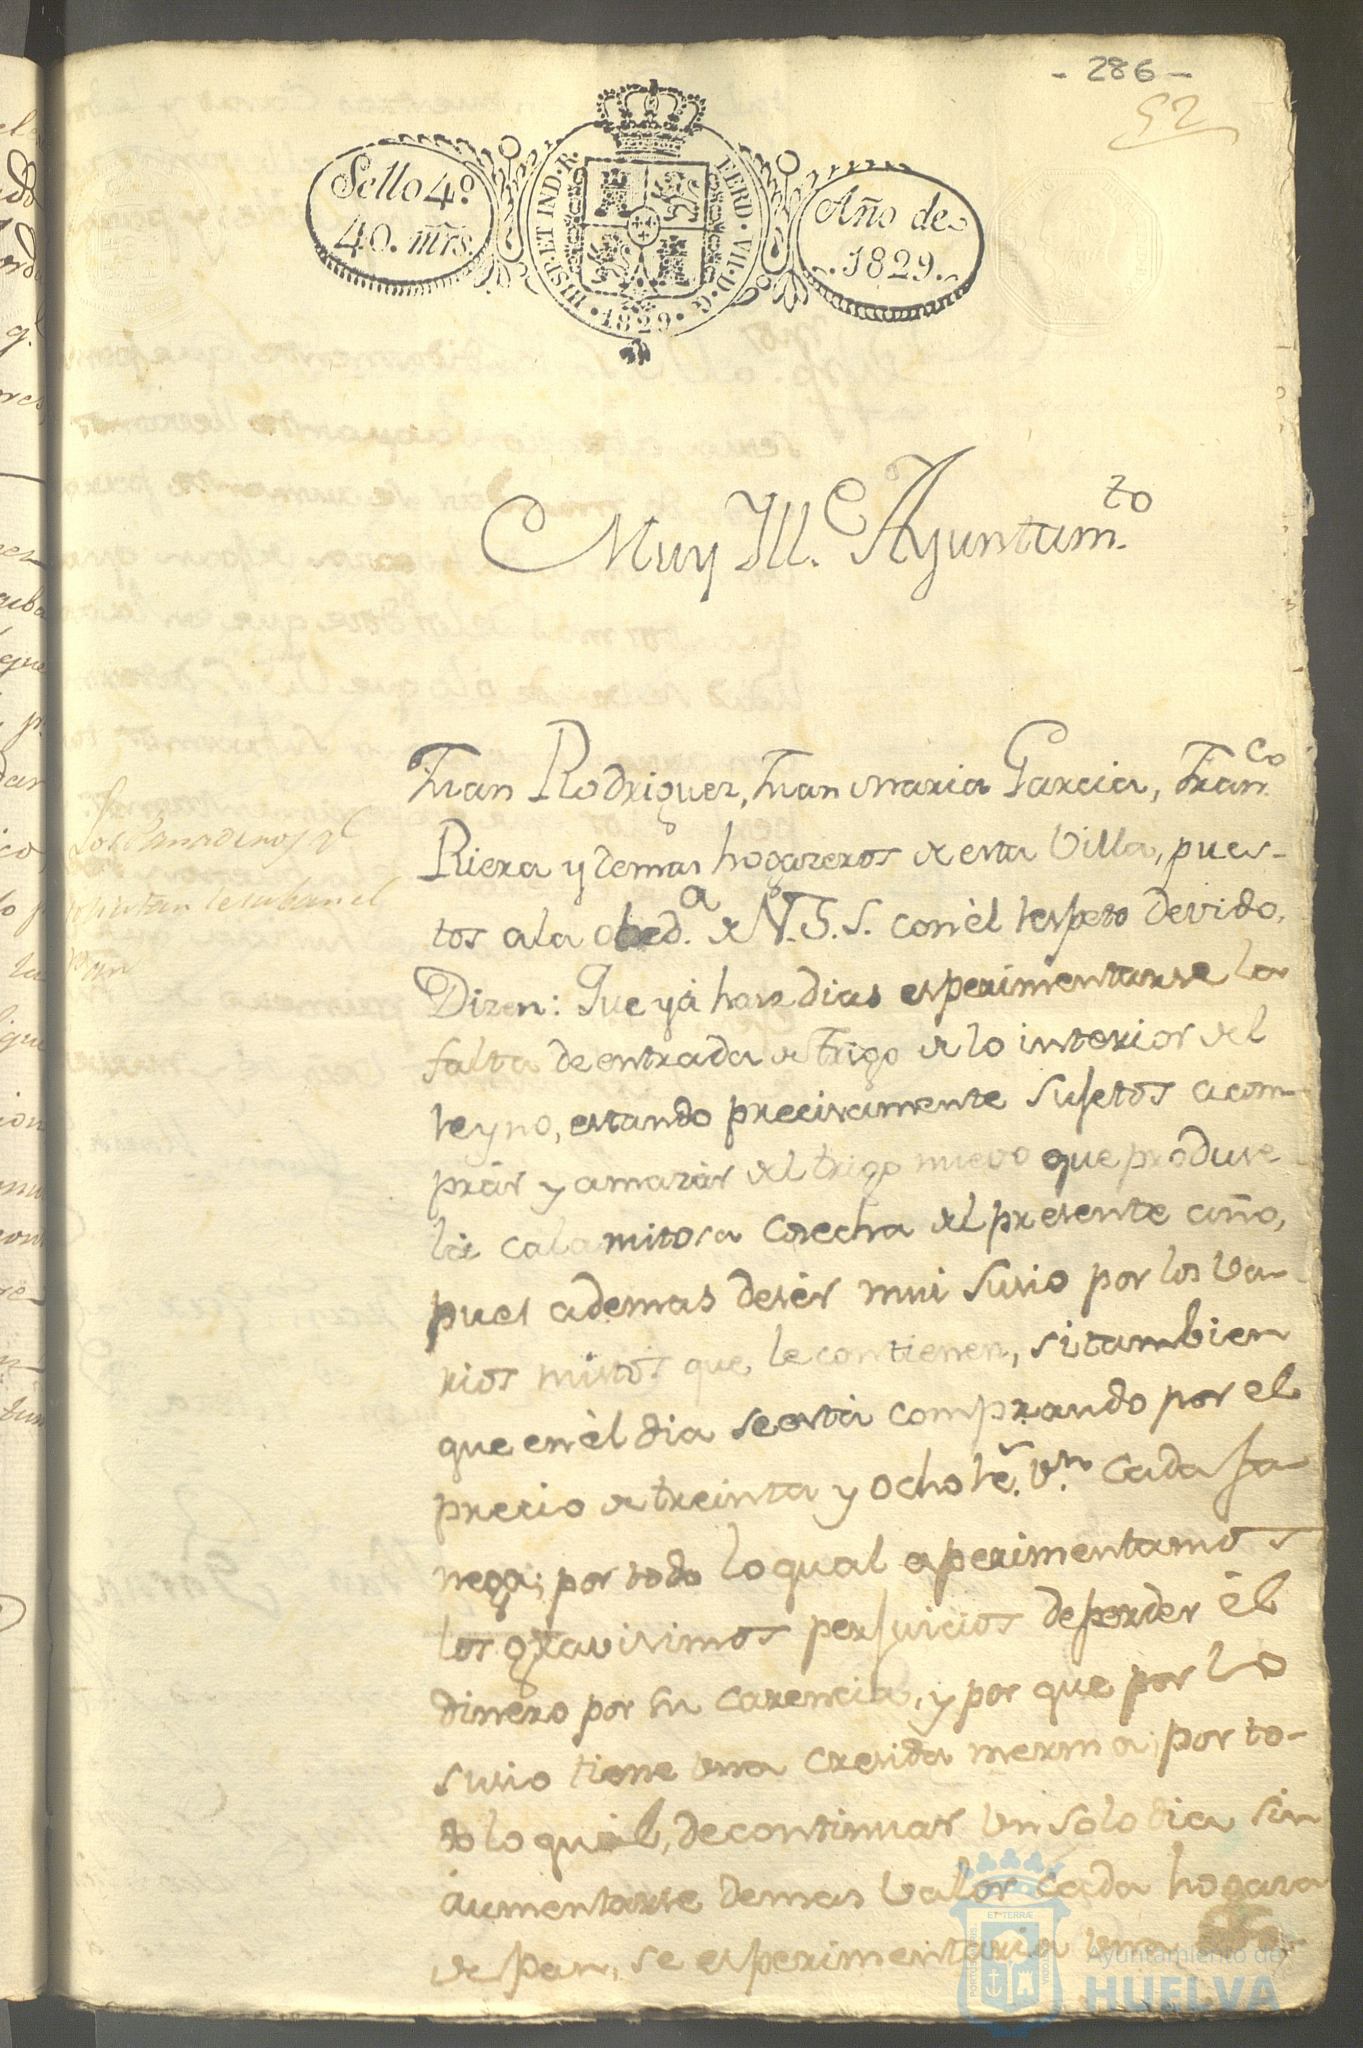 - 286 -
52
Sello 4º.
40. mrs.
HISP. ET IND. R.
FERD. VII. D. G.
· 1829 ·
Año de
1829.
Muy Ill.e Ayuntam.to
Juan Rodriguez, Juan maria Garcia, Fran.co
Riera y demas hogazeros de esta Villa, pues-
tos a la obed.a de V.S.S. con èl respeto devido,
Dizen: Que yá hase dias esperimentarse la
falta de entrada de trigo de lo interior del
reyno, estando precisamente sujetos a com-
prár y amazár del trigo nuevo que produse
la calamitosa cosecha del presente año,
pues ademas de sér mui susio por los va-
rios mistos que le contienen, si tambien
que en èl dia se está comprando por el
precio de treinta y ocho r.s v.n cada fa-
nega; por todo lo qual esperimentamos
los gravisimos perjuicios de perder él
dinero por su carencia, y por que por lo
susio tiene una cresida merma; por to-
do lo qual, de continuar un solo dia sin
aumentarse demas valor cada hogaza
de pan, se esperimentaria una
Los Panaderos
solicitan se suban el
pan
Ayuntamiento de
HUELVA